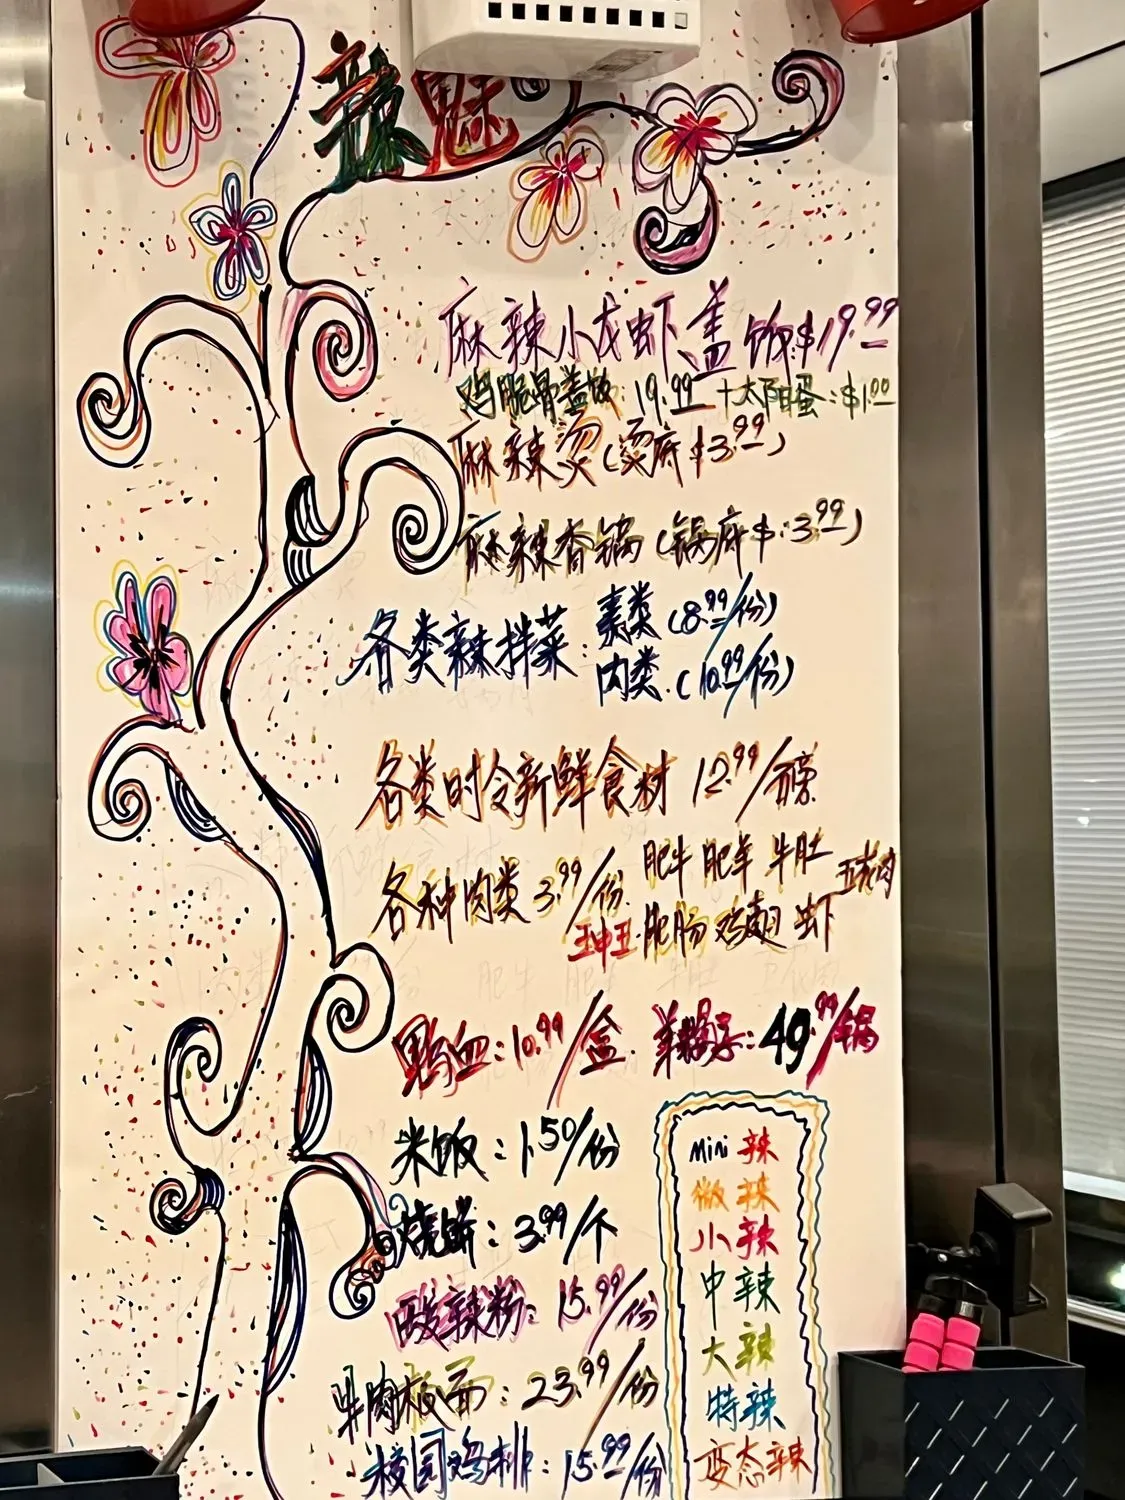 辣魅
麻辣小龙虾盖饭$19.99
鸡脆骨盖饭:19.99 +太阳蛋:$1.00
麻辣烫(烫底$3.99)
麻辣香锅(锅底$:3.99)
各类辣拌菜:素类(8.99/份)
肉类.(10.99/份)
各类时令新鲜食材 12.99/磅
各种肉类3.99/份. 肥牛 肥羊 牛肚 五花肉
肥肠 鸡翅 虾
鸭血:10.99/盒. 羊蝎子:49.99/锅
米饭:1.50/份
烧饼:3.99/个
酸辣粉:15.99/份
牛肉板面:23.99/份
校园鸡排:15.99/份
Mini 辣
微辣
小辣
中辣
大辣
特辣
变态辣